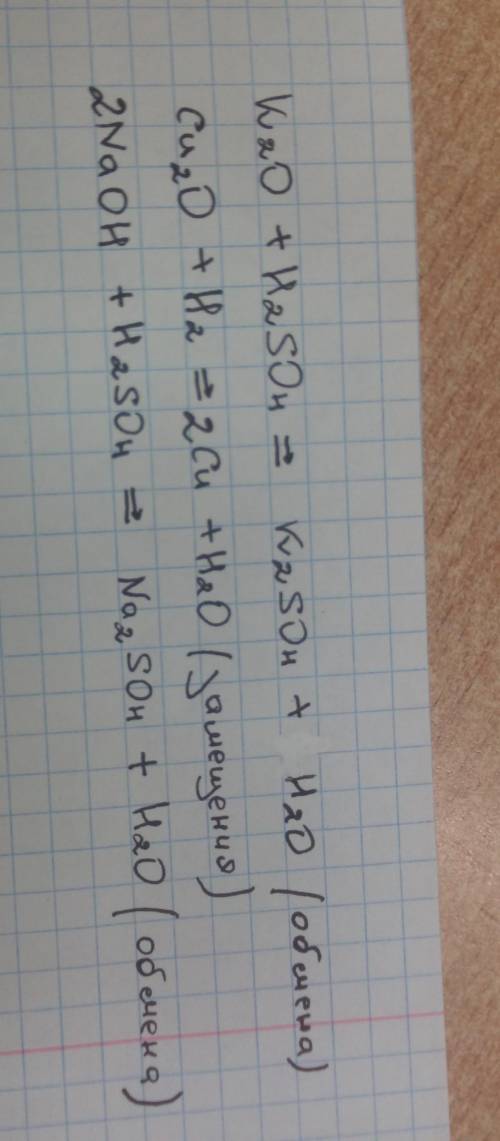 K₂O + H₂SO₄ = K₂SO₄ + H₂O (обмена)
Cu₂O + H₂ = 2Cu + H₂O (замещения)
2NaOH + H₂SO₄ = Na₂SO₄ + H₂O (обмена)